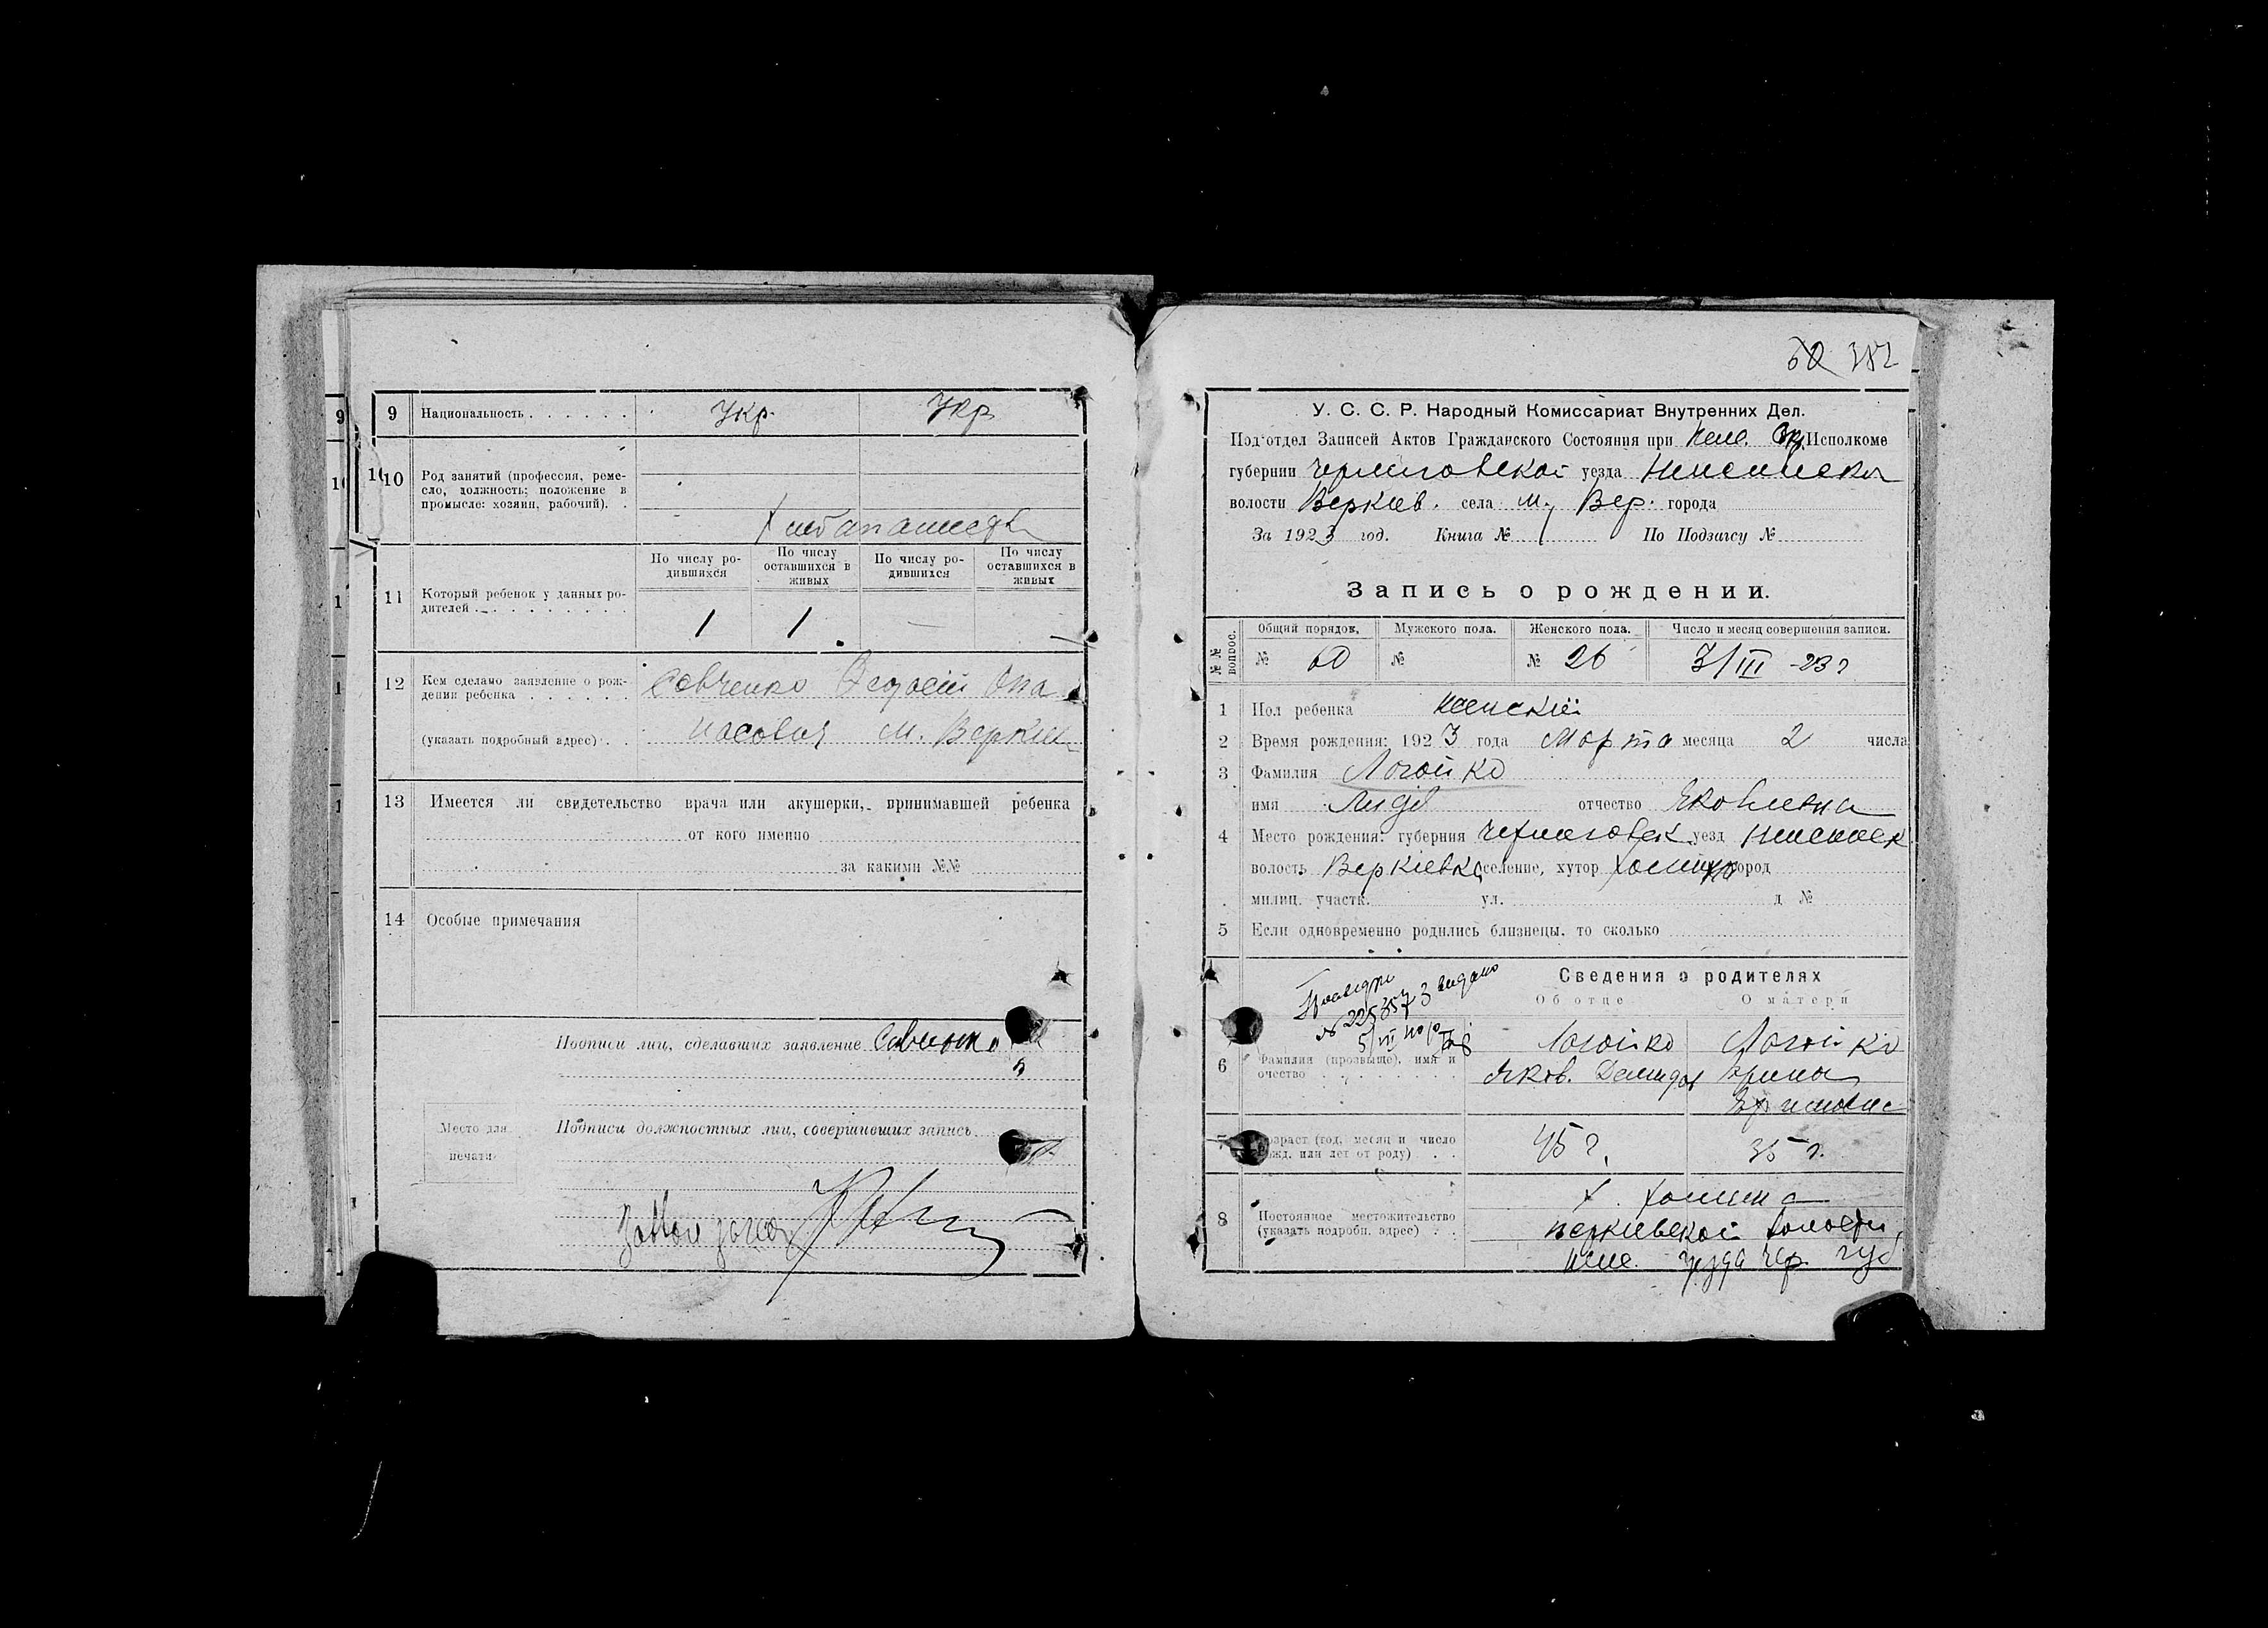 9 Национальность Укр. Укр.
10 Род занятий (профессия, реме-
сло, должность; положение в
промысле: хозяин, рабочий).
По числу ро-
дившихся
По числу
оставшихся в
живых
По числу ро-
дившихся
По числу
оставшихся в
живых
11 Который ребенок у данных ро-
дителей
1 1
12 Кем сделано заявление о рож-
дении ребенка Савченко Федосій Опа
насович м. Верки
(указать подробный адрес)
13 Имеется ли свидетельство врача или акушерки, принимавшей ребенка
от кого именно
за какими №№
14 Особые примечания
Подписи лиц, сделавших заявление
Место для
печати
Подписи должностных лиц, совершивших запись
382
У. С. С. Р. Народный Комиссариат Внутренних Дел.
Подотдел Записей Актов Гражданского Состояния при Исполкоме
губернии Черниговской уезда
волости Веркіев. села м. Вер. города
За 1923 год. Книга № По Подзагсу №
Запись о рождении.
№ № вопрос.
Общий порядок. Мужского пола. Женского пола. Число и месяц совершения записи.
№ 60 № № 26 3/III -23 г
1 Пол ребенка женскій
2 Время рождения: 1923 года Марта месяца 2 числа
3 Фамилия Логойко
имя Лидія отчество Яковлевна
4 Место рождения: губерния Черниговск уезд Нженск
волость Веркіевка селение, хутор город
милиц. участк. ул. д №
5 Если одновременно родились близнецы, то сколько
Сведения о родителях
Об отце О матери
№ 223573 видано
6 Фамилия (прозвыще), имя и
очество
Логойко Логойко
Яков. Демидов Ирина
Возраст (год, месяц и число
рожд. или лет от роду)
45 г. 35 г.
8 Постоянное местожительство
(указать подробн. адрес)
х. Хомина
Веркіевской волости
неж. уезда Чер. губ